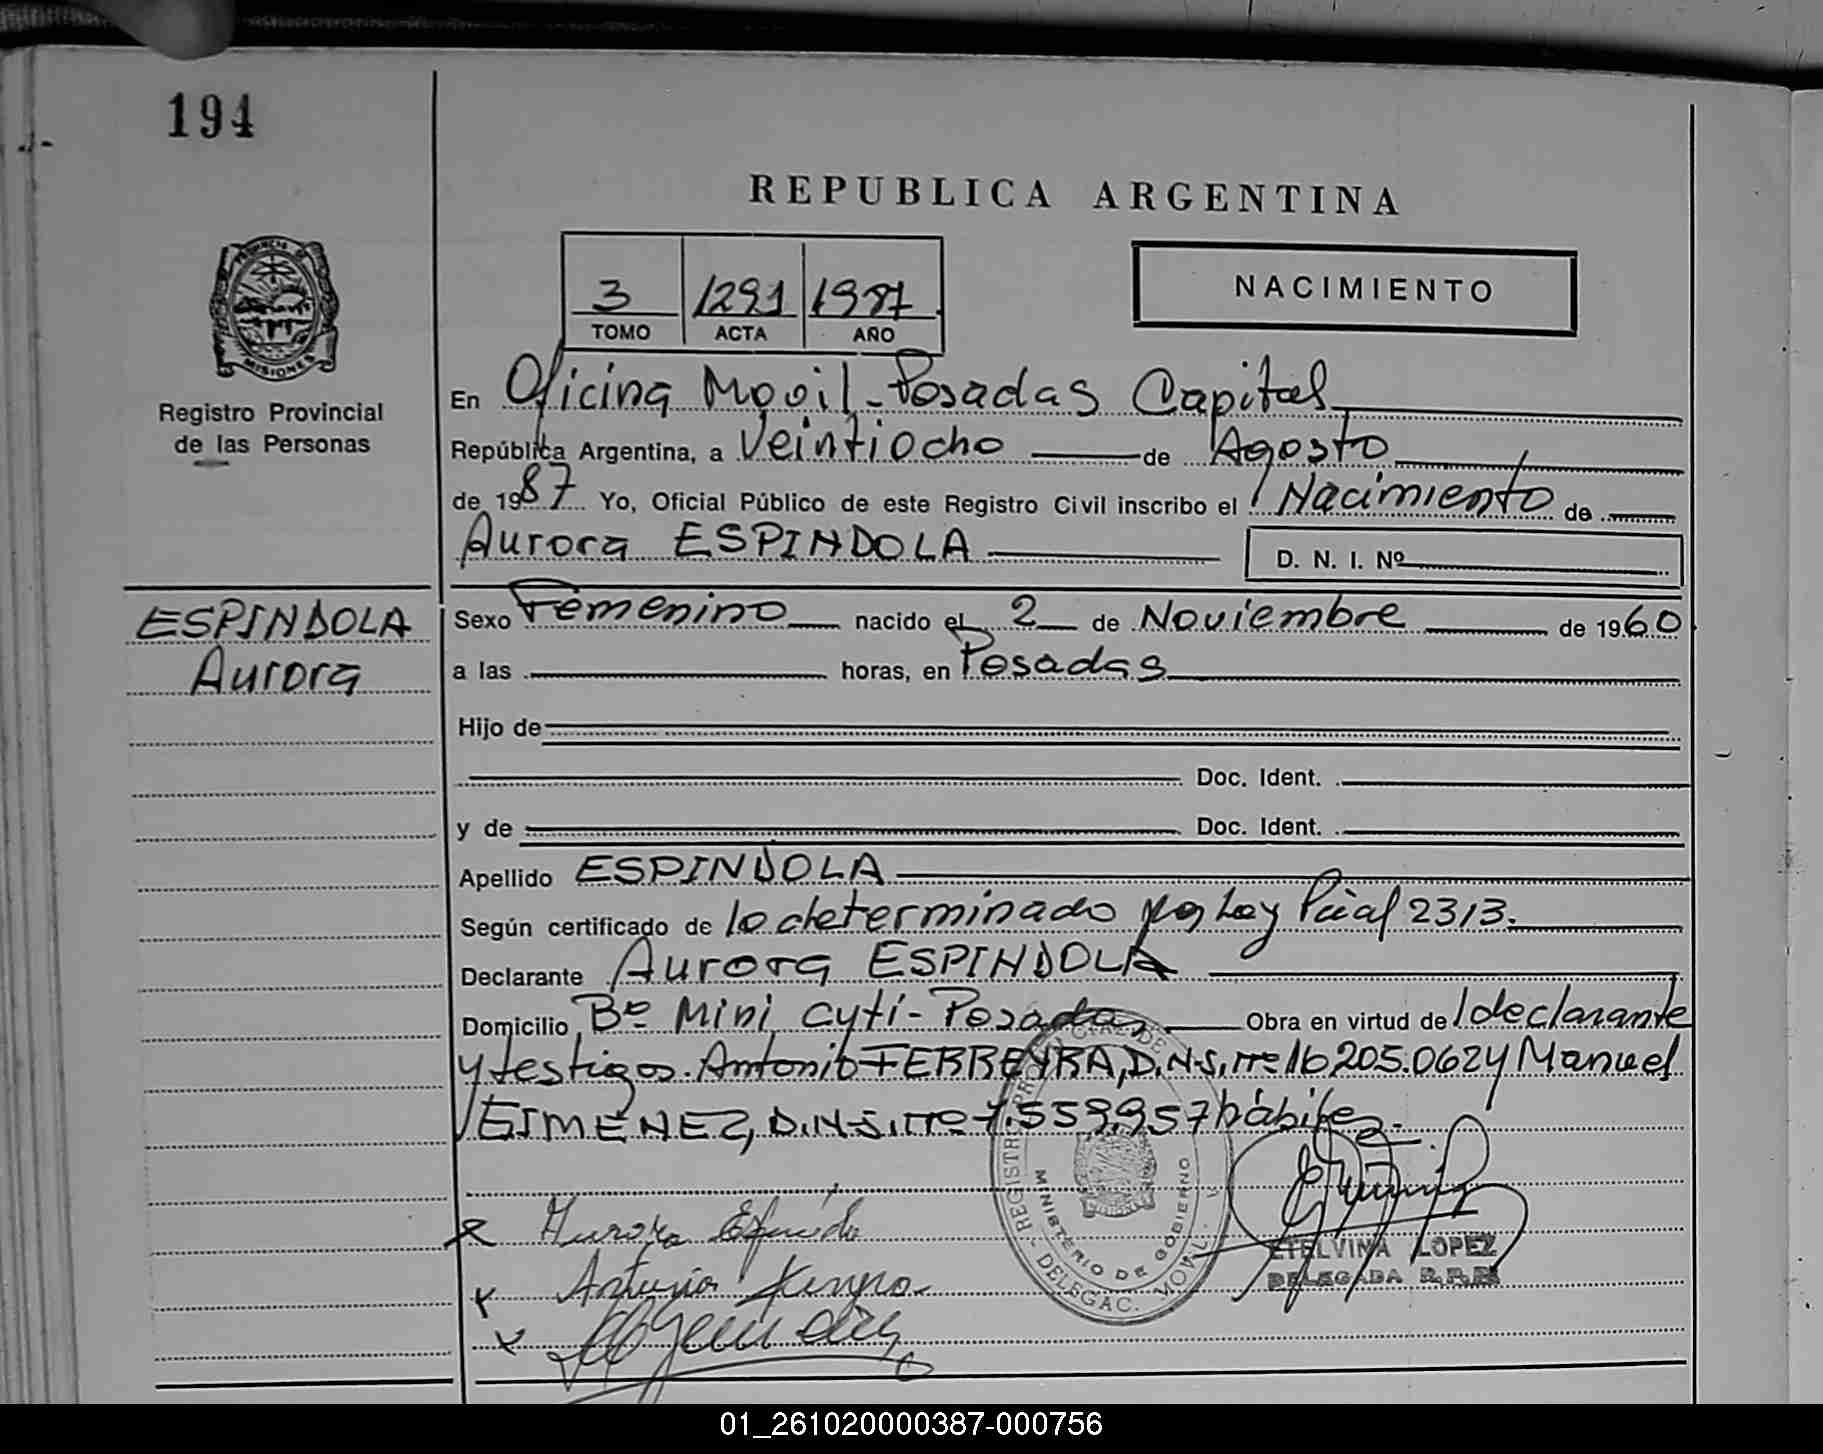 194
REPUBLICA ARGENTINA
3 1291 1987
TOMO ACTA AÑO
NACIMIENTO
PROVINCIA DE MISIONES
Registro Provincial
de las Personas
En Oficina Movil - Posadas Capital
República Argentina, a Veintiocho de Agosto
de 1987 Yo, Oficial Público de este Registro Civil inscribo el Nacimiento de
Aurora ESPINDOLA D. N. I. Nº
ESPINDOLA
Aurora
Sexo Femenino nacido el 2 de Noviembre de 1960
a las horas, en Posadas
Hijo de
Doc. Ident.
y de Doc. Ident.
Apellido ESPINDOLA
Según certificado de lo determinado por Ley Pcial 2313.
Declarante Aurora ESPINDOLA
Domicilio Bº Mini Cyti - Posadas Obra en virtud de declarante
y testigos. Antonio FERREYRA, D.N.I. nº 16 205.062 y Manuel
JIMENEZ, D.N.I. nº 7.559.957 hábiles.
Aurora
Antonio
REGISTR PROV DE
DELEGAC. MOVIL
MINISTERIO DE GOBIERNO
ETELVINA LOPEZ
DELEGADA R.P.P.
01_261020000387-000756